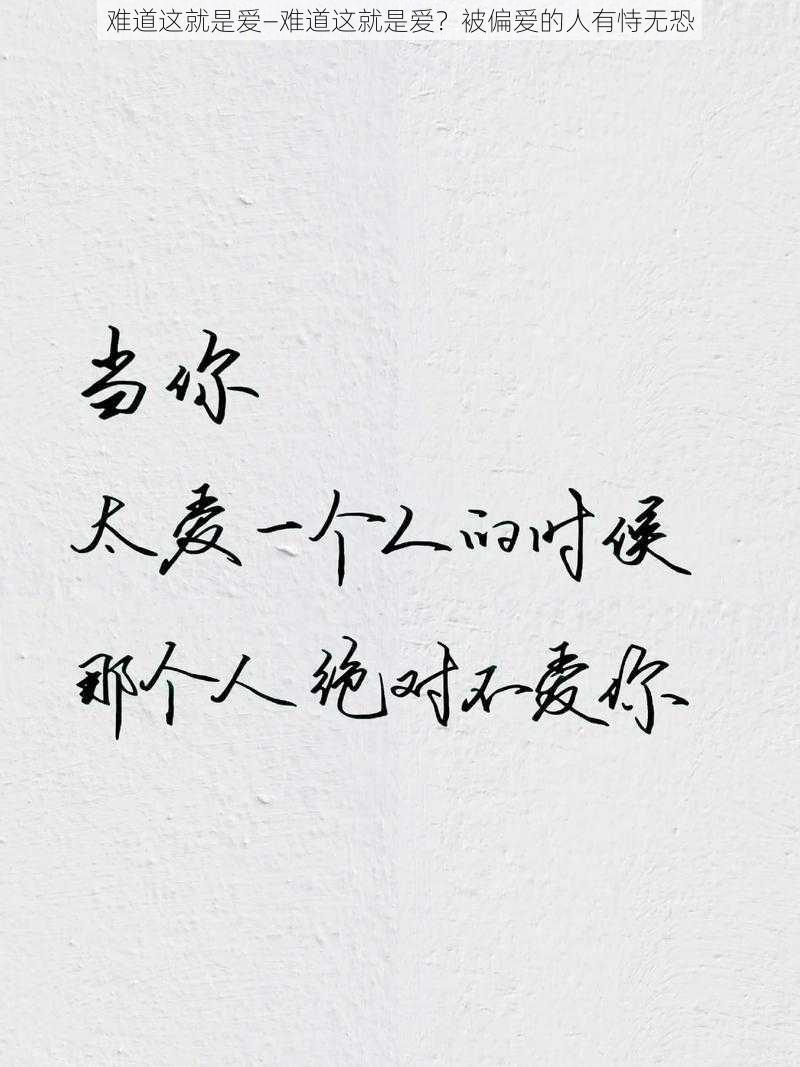 难道这就是爱—难道这就是爱？被偏爱的人有恃无恐
当你
太爱一个人的时候
那个人绝对不爱你